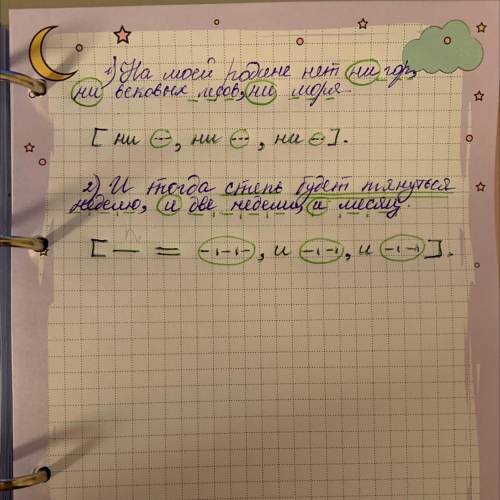 1) На моей родине нет ни гор,
ни вековых лесов, ни моря.
[ ни ---, ни ---, ни --- ].
2) И тогда степь будет тянуться
неделю, и две недели, и месяц.
[ — = -·-·-, и -·-·-, и -·-·- ].